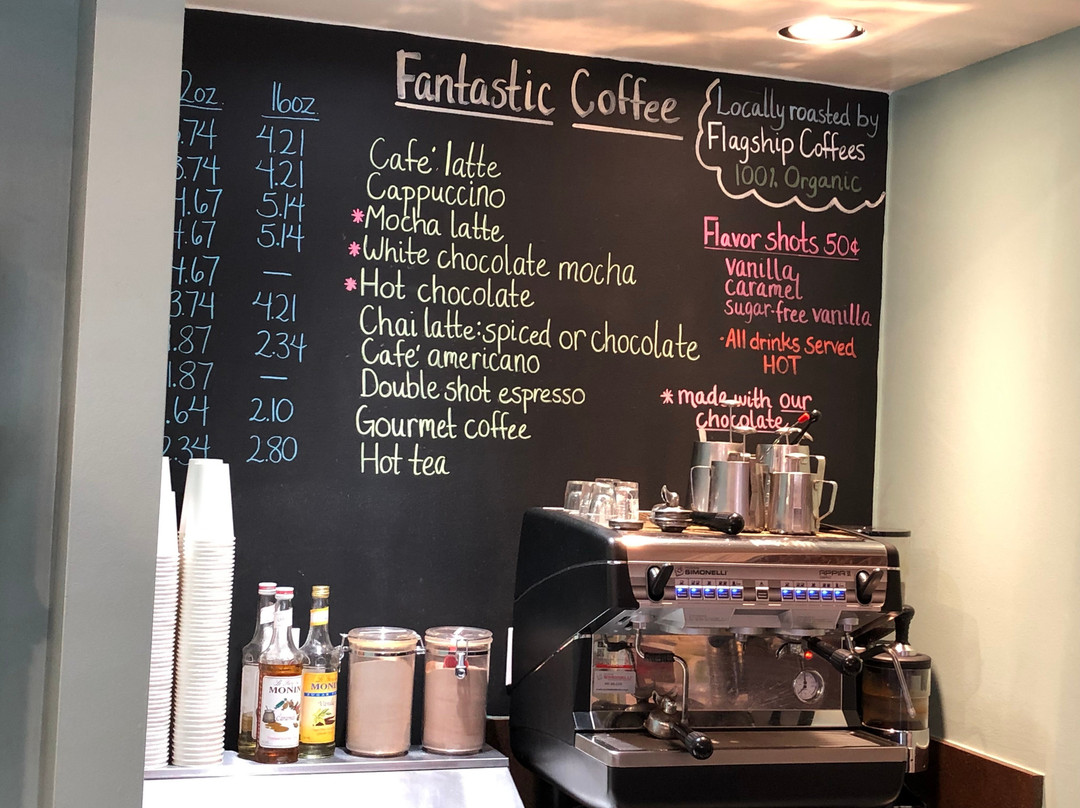 2oz. 16oz.
.74 4.21
3.74 4.21
4.67 5.14
4.67 5.14
4.67 —
3.74 4.21
.87 2.34
1.87 —
.64 2.10
2.34 2.80
Fantastic Coffee
Café latte
Cappuccino
*Mocha latte
*White chocolate mocha
*Hot chocolate
Chai latte: spiced or chocolate
Café americano
Double shot espresso
Gourmet coffee
Hot tea
Locally roasted by
Flagship Coffees
100% Organic
Flavor shots 50¢
vanilla
caramel
sugar-free vanilla
-All drinks served
HOT
* made with our
chocolate
SIMONELLI
APPIA II
MONIN
MONI